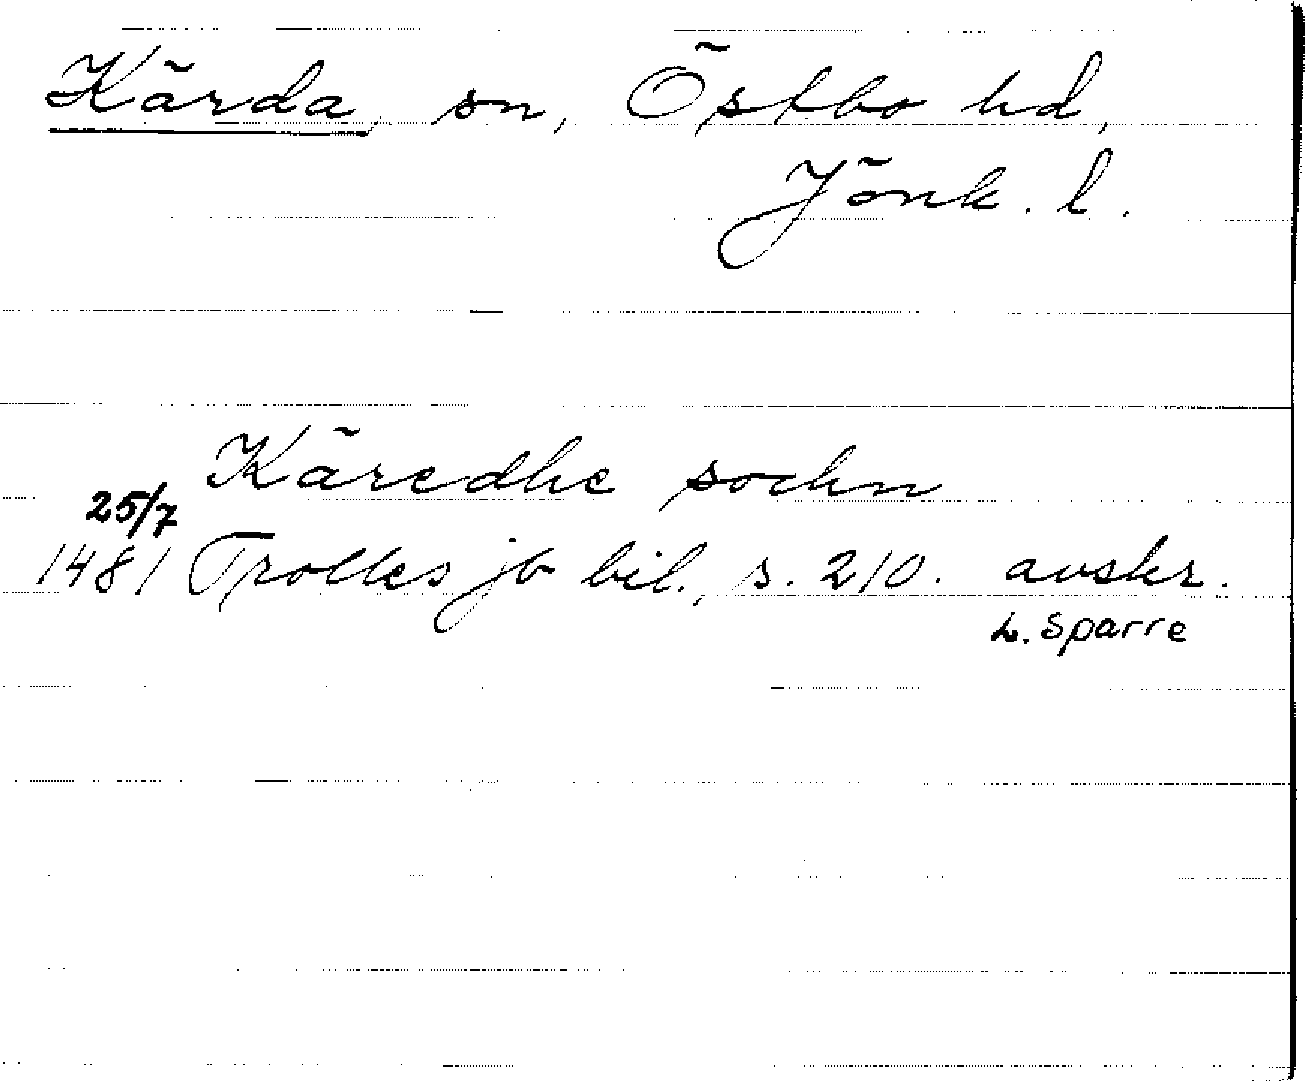 Kärda, sn, Östbo hd,
Jönk. l.
Käredhe sochn
25/7
1481 Trolles jb bil., s. 210. avskr.
L. Sparre